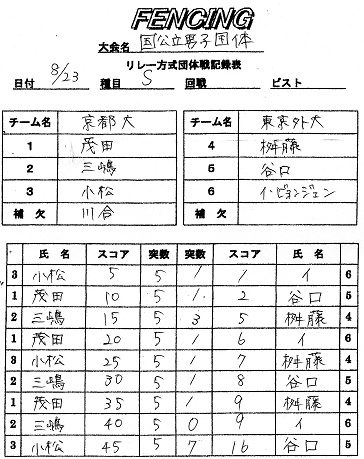 FENCING
大会名 国公立男子団体
リレー方式団体戦記録表
日付 8/23 種目 S 回戦 ピスト
チーム名 京都大 チーム名 東京外大
1 茂田 4 桝藤
2 三嶋 5 谷口
3 小松 6 イ・ビョンジュン
補欠 川合 補欠
氏名 スコア 突数 突数 スコア 氏名
3 小松 5 5 1 1 イ 6
1 茂田 10 5 1 2 谷口 5
2 三嶋 15 5 3 5 桝藤 4
1 茂田 20 5 1 6 イ 6
3 小松 25 5 1 7 桝藤 4
2 三嶋 30 5 1 8 谷口 5
1 茂田 35 5 1 9 桝藤 4
2 三嶋 40 5 0 9 イ 6
3 小松 45 5 7 16 谷口 5